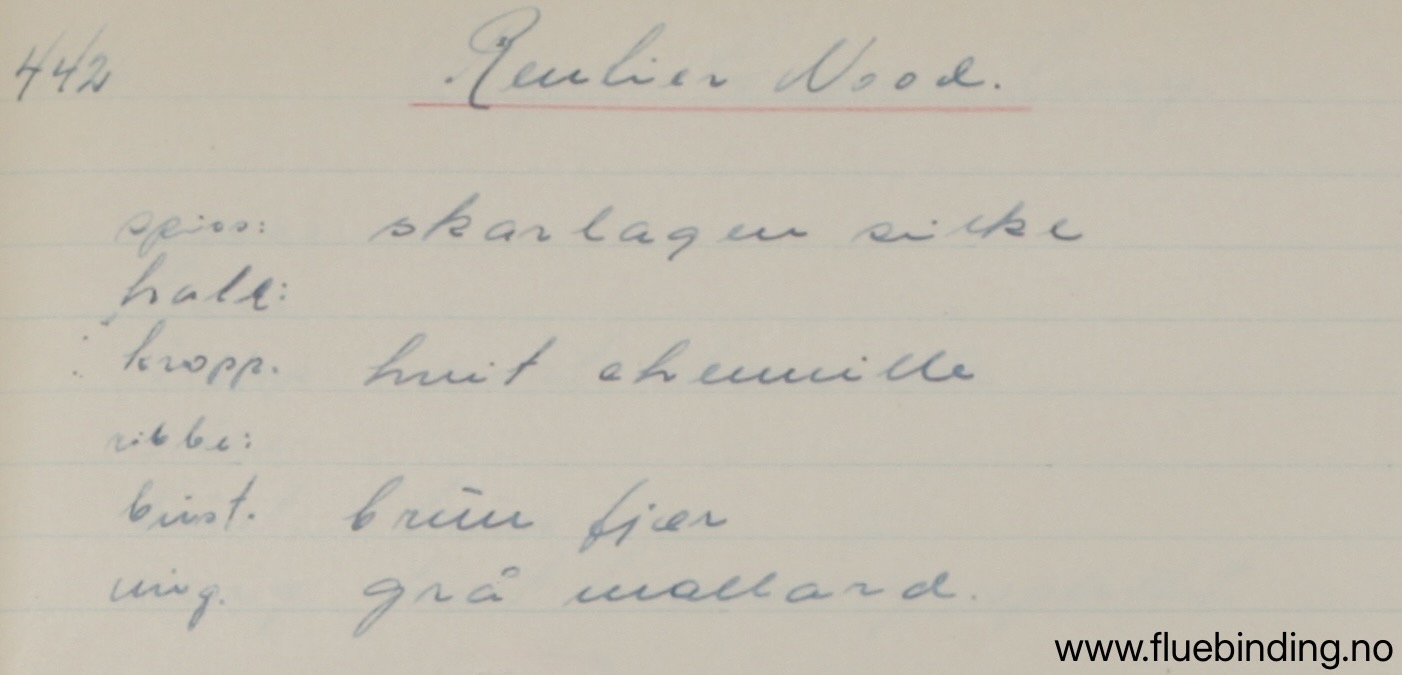 442 Reubier Wood.
spiss: skarlagen silke
hale:
kropp. hvit chennille
ribbe:
bust. brun fjær
ving. grå mallard.
www.fluebinding.no